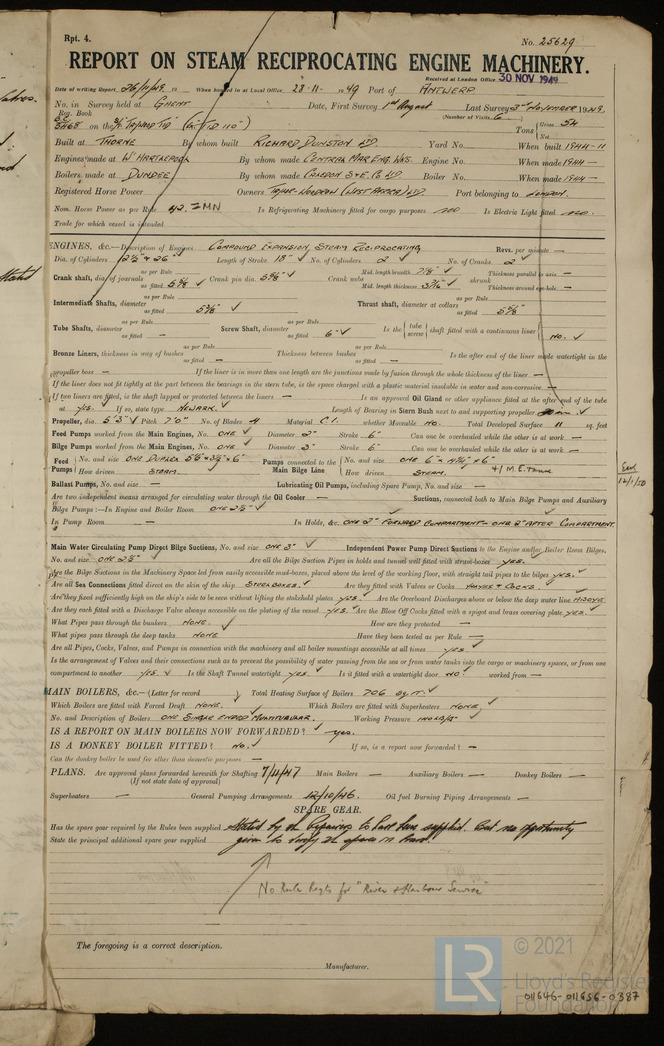 Rpt. 4.
No. 25629
REPORT ON STEAM RECIPROCATING ENGINE MACHINERY.
Received at London Office 30 NOV 1949
Date of writing Report 26/11/49 19 When handed in at Local Office 28-11- 1949 Port of ANTWERP
No. in Survey held at GHENT Date, First Survey 1st August Last Survey 3rd NOVEMBER 1949.
Reg. Book (Number of Visits 6)
on the Tons { Gross 54
Net
Built at THORNE By whom built RICHARD DUNSTON LD Yard No. — When built 1944-11
Engines made at W. HARTLEPOOL By whom made CENTRAL MAR. ENG. WKS. Engine No. — When made 1944 —
Boilers made at DUNDEE By whom made Boiler No. — When made 1944 —
Registered Horse Power Owners Port belonging to LONDON.
Nom. Horse Power as per Rule 42. = MN Is Refrigerating Machinery fitted for cargo purposes no Is Electric Light fitted no.
Trade for which vessel is intended
ENGINES, &c.—Description of Engines COMPOUND EXPANSION, STEAM RECIPROCATING Revs. per minute —
Dia. of Cylinders 12½" & 26" Length of Stroke 18" No. of Cylinders 2 No. of Cranks 2
Crank shaft, dia. of journals as per Rule as fitted 5⅝ Crank pin dia. 5⅝" Crank webs Mid. length breadth 7⅛" shrunk Thickness parallel to axis —
Mid. length thickness 3 7/16" Thickness around eye-hole —
Intermediate Shafts, diameter as per Rule as fitted 5⅜" Thrust shaft, diameter at collars as per Rule as fitted 5⅝"
Tube Shafts, diameter as per Rule as fitted — Screw Shaft, diameter as per Rule as fitted 6" Is the { tube screw } shaft fitted with a continuous liner { No.
Bronze Liners, thickness in way of bushes as per Rule as fitted — Thickness between bushes as per Rule as fitted — Is the after end of the liner made watertight in the
propeller boss — If the liner is in more than one length are the junctions made by fusion through the whole thickness of the liner —
If the liner does not fit tightly at the part between the bearings in the stern tube, is the space charged with a plastic material insoluble in water and non-corrosive —
If two liners are fitted, is the shaft lapped or protected between the liners — Is an approved Oil Gland or other appliance fitted at the after end of the tube
at yes. If so, state type NEWARK. Length of Bearing in Stern Bush next to and supporting propeller
Propeller, dia. 5'3" Pitch 7'0" No. of Blades 4 Material C.I. whether Moveable No. Total Developed Surface 11 sq. feet
Feed Pumps worked from the Main Engines, No. ONE Diameter 2" Stroke 6" Can one be overhauled while the other is at work —
Bilge Pumps worked from the Main Engines, No. ONE Diameter 3" Stroke 6" Can one be overhauled while the other is at work —
Feed Pumps { No. and size ONE DUPLEX 5½ × 3½ × 6" Pumps connected to the Main Bilge Line { No. and size ONE 6" × 4½" × 6"
How driven STEAM. How driven STEAM. + 1 M.E.
12/1/50
Ballast Pumps, No. and size — Lubricating Oil Pumps, including Spare Pump, No. and size —
Are two independent means arranged for circulating water through the Oil Cooler — Suctions, connected both to Main Bilge Pumps and Auxiliary
Bilge Pumps :—In Engine and Boiler Room ONE 2½"
In Pump Room — In Holds, &c. ONE 2" FORWARD COMPARTMENT — ONE 2" AFTER COMPARTMENT.
Main Water Circulating Pump Direct Bilge Suctions, No. and size ONE 3" Independent Power Pump Direct Suctions to the Engine and/or Boiler Room Bilges,
No. and size ONE 2½" Are all the Bilge Suction Pipes in holds and tunnel well fitted with strum-boxes yes.
Are the Bilge Suctions in the Machinery Space led from easily accessible mud-boxes, placed above the level of the working floor, with straight tail pipes to the bilges yes.
Are all Sea Connections fitted direct on the skin of the ship STEELBOXES. Are they fitted with Valves or Cocks VALVES & COCKS.
Are they fixed sufficiently high on the ship's side to be seen without lifting the stokehold plates yes. Are the Overboard Discharges above or below the deep water line ABOVE
Are they each fitted with a Discharge Valve always accessible on the plating of the vessel yes. Are the Blow Off Cocks fitted with a spigot and brass covering plate yes.
What Pipes pass through the bunkers NONE. How are they protected —
What pipes pass through the deep tanks NONE Have they been tested as per Rule —
Are all Pipes, Cocks, Valves, and Pumps in connection with the machinery and all boiler mountings accessible at all times yes
Is the arrangement of Valves and their connections such as to prevent the possibility of water passing from the sea or from water tanks into the cargo or machinery spaces, or from one
compartment to another yes. Is the Shaft Tunnel watertight yes. Is it fitted with a watertight door NO. worked from —
MAIN BOILERS, &c.—(Letter for record ) Total Heating Surface of Boilers 706 sq ft.
Which Boilers are fitted with Forced Draft NONE. Which Boilers are fitted with Superheaters NONE
No. and Description of Boilers ONE SINGLE ENDED MULTITUBULAR. Working Pressure
IS A REPORT ON MAIN BOILERS NOW FORWARDED? yes.
IS A DONKEY BOILER FITTED? No. If so, is a report now forwarded? —
Can the donkey boiler be used for other than domestic purposes —
PLANS. Are approved plans forwarded herewith for Shafting 7/11/47 Main Boilers — Auxiliary Boilers — Donkey Boilers —
(If not state date of approval)
Superheaters — General Pumping Arrangements 12/10/46. Oil fuel Burning Piping Arrangements —
SPARE GEAR.
Has the spare gear required by the Rules been supplied Stated by the Repairers to have been supplied. But no opportunity
State the principal additional spare gear supplied given to verify the spares on board.
No Rule Reqts for "River & Harbour Service"
The foregoing is a correct description.
Manufacturer.
LR © 2021
Lloyd's Register
Foundation
011646-011656-0387